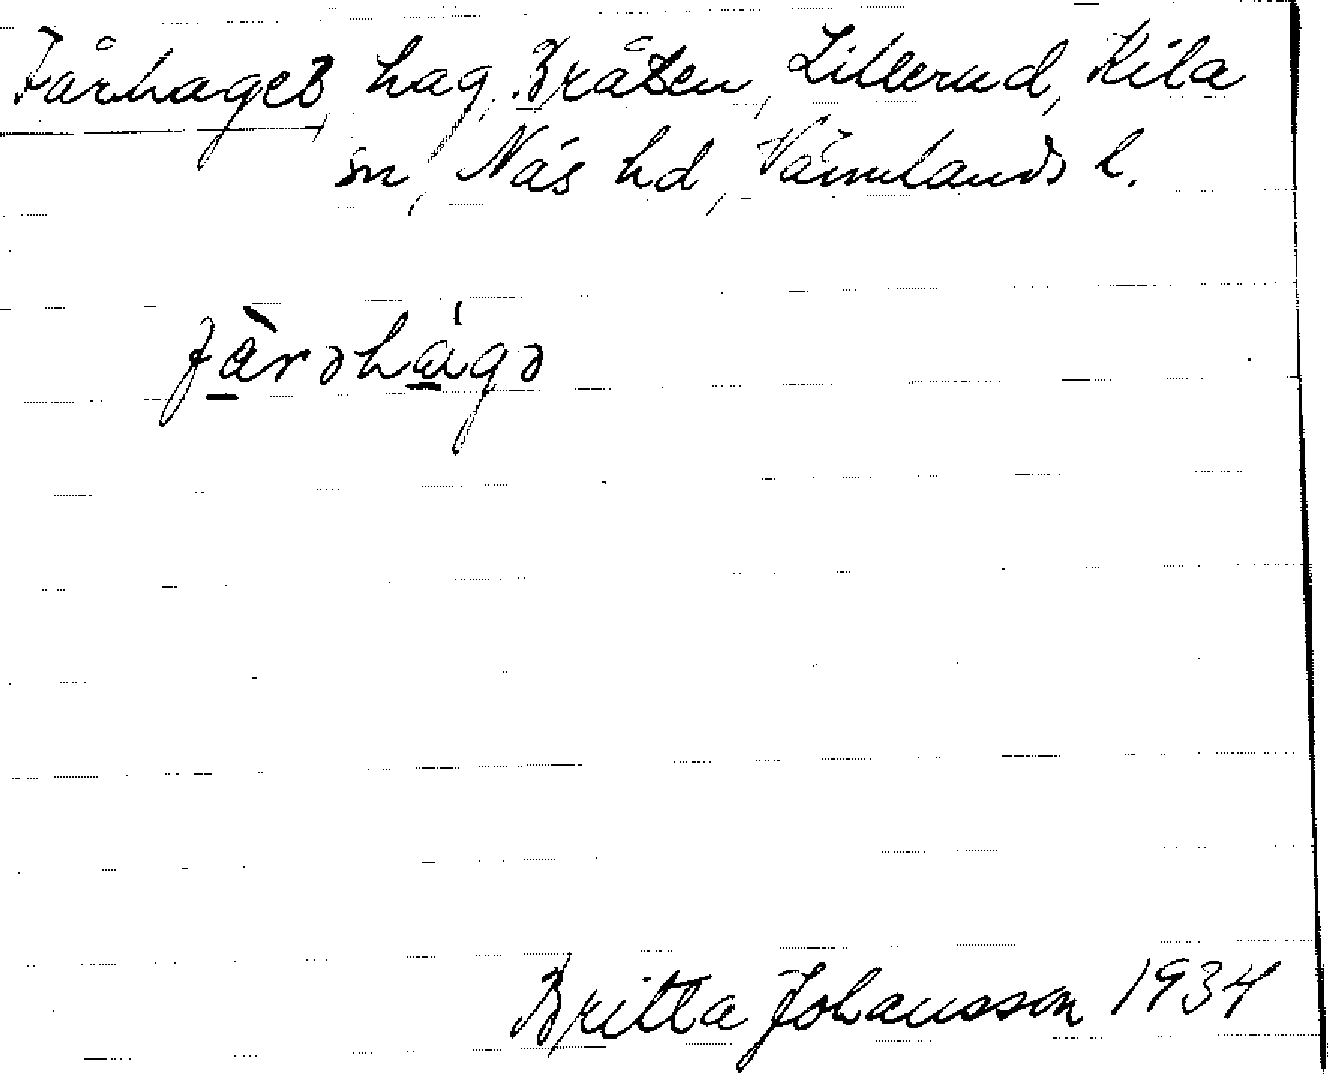 Fårhaget hag, Bråten, Lillerud, Kila
sn, Näs hd, Värmlands l.
fàrəhágə
Britta Johansson 1934